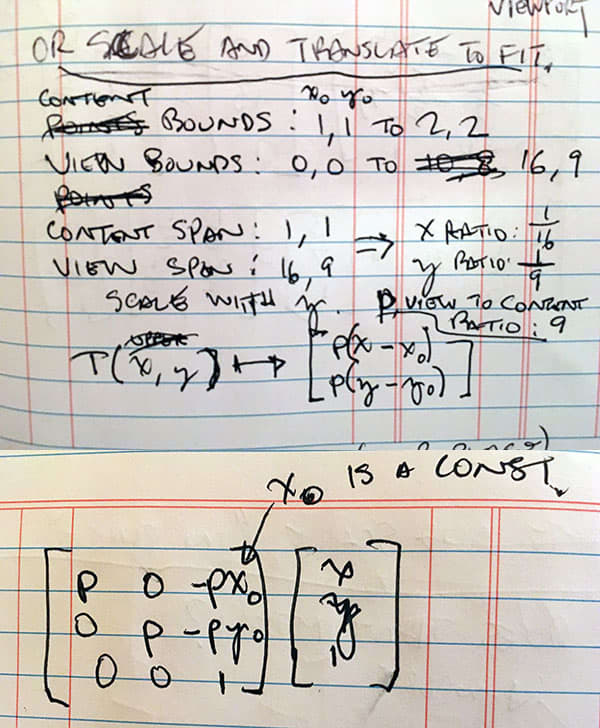 VIEWPORT
OR SCALE AND TRANSLATE TO FIT.
CONTENT x₀ y₀
POINTS BOUNDS: 1,1 TO 2,2
VIEW BOUNDS: 0,0 TO 16,9
POINTS
CONTENT SPAN: 1, 1 ⇒ X RATIO: 1/16
VIEW SPAN: 16, 9 y RATIO: 1/9
SCALE WITH y. P, VIEW TO CONTENT
RATIO: 9
T(x, y) ↔ [p(x-x₀)
p(y-y₀)]
x₀ IS A CONST
[P 0 -px₀] [x
0 P -py₀ y
0 0 1] 1]